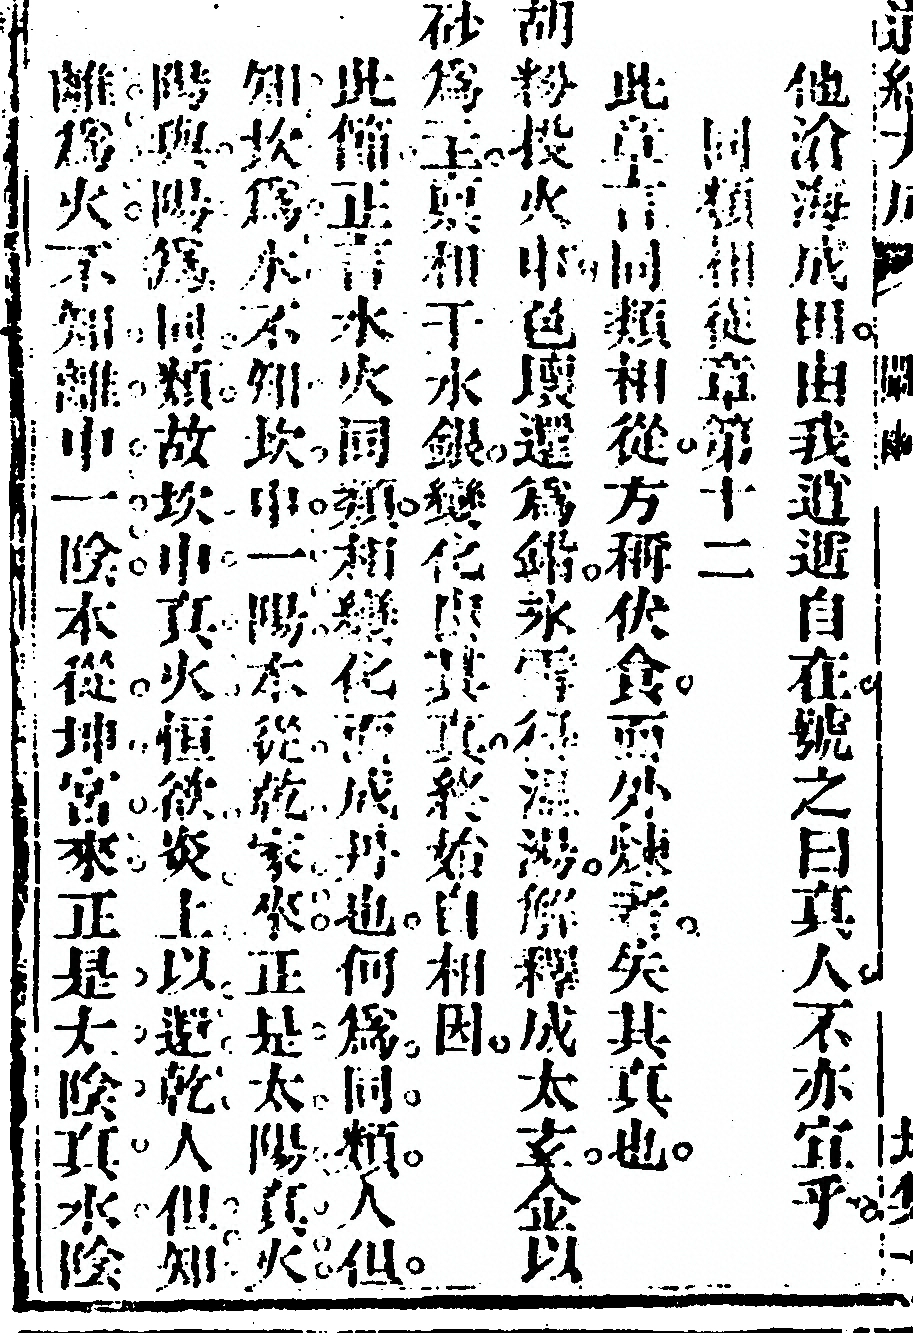 他滄海成田由我逍遥自在號之曰真人不亦宜乎
同類相從章第十二
此章言同類相從方稱伏食而外煉者失其真也
胡粉投火中色壞還為鉛氷雪得溫湯解釋成太玄金以
砂為主稟相于水銀變化由其真終始自相因
此節正言水火同類相變化而成丹也何為同類人但
知坎為水不知坎中一陽本從乾家來正是太陽真火
陽與陽為同類故坎中真火恒欲炎上以還乾人但知
離為火不知離中一陰本從坤宮來正是太陰真水陰